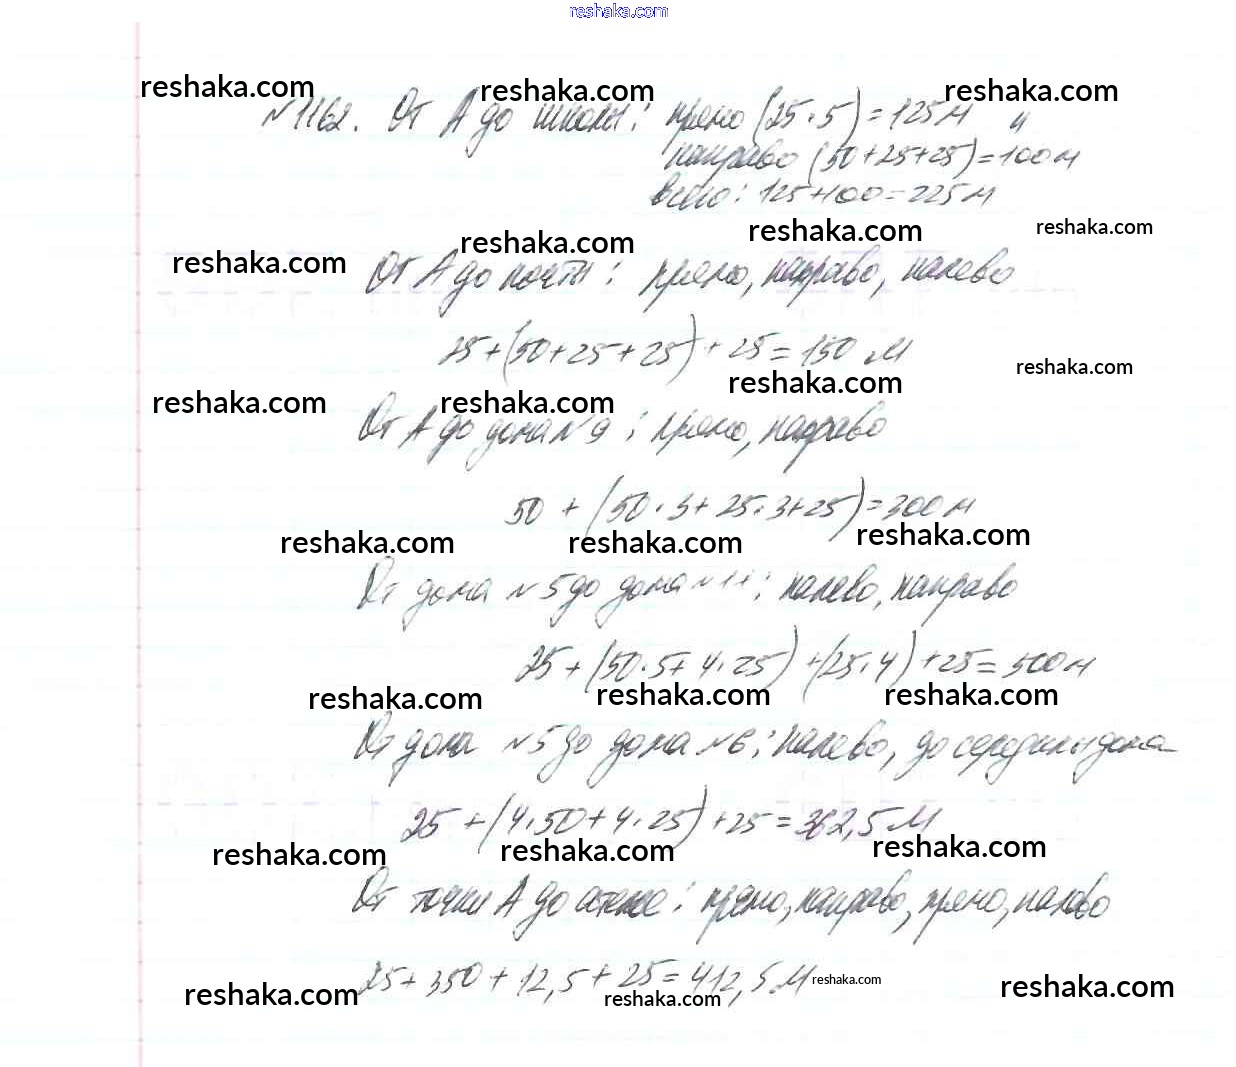 reshaka.com
reshaka.com reshaka.com reshaka.com
№1162. От А до школы: прямо (25·5)=125м и
направо (50+25+25)=100м
всего: 125+100=225м
reshaka.com reshaka.com reshaka.com reshaka.com
От А до почты: прямо, направо, налево
25+(50+25+25)+25=150 м
reshaka.com reshaka.com reshaka.com reshaka.com
От А до дома №9: прямо, направо
50+(50·3+25·3+25)=300м
reshaka.com reshaka.com reshaka.com
От дома №5 до дома №11: налево, направо
25+(50·5+4·25)+(25·4)+25=500м
reshaka.com reshaka.com reshaka.com
От дома №5 до дома №6: налево, до середины дома
25+(4·50+4·25)+25=362,5м
reshaka.com reshaka.com reshaka.com
От точки А до ателье: прямо, направо, прямо, налево
25+350+12,5+25=412,5м
reshaka.com reshaka.com reshaka.com reshaka.com